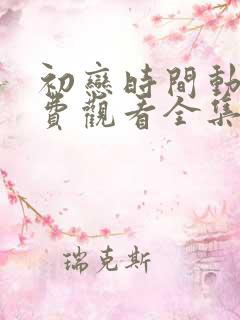 初戀時間動
費觀看全集
瑞克斯